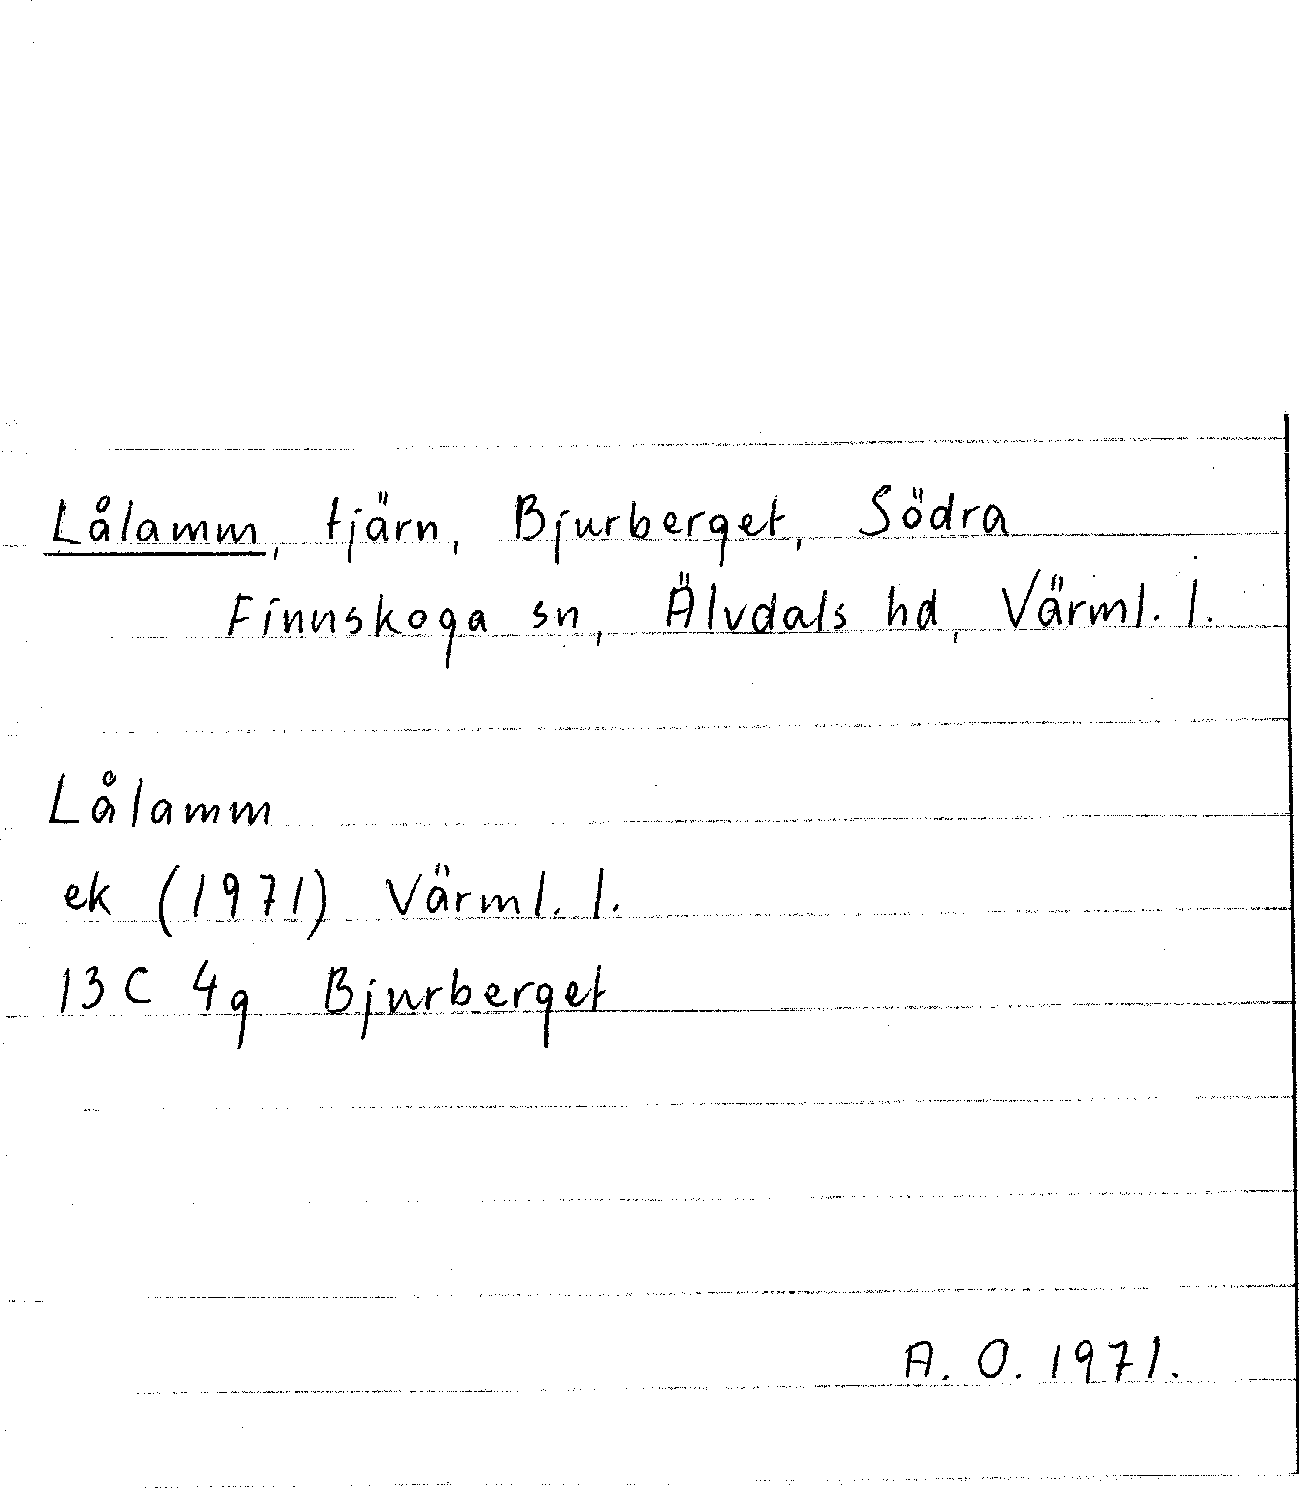 Lålamm, tjärn, Bjurberget, Södra
Finnskoga sn, Älvdals hd, Värml. l.
Lålamm
ek (1971) Värml. l.
13 C 4g Bjurberget
A. O. 1971.